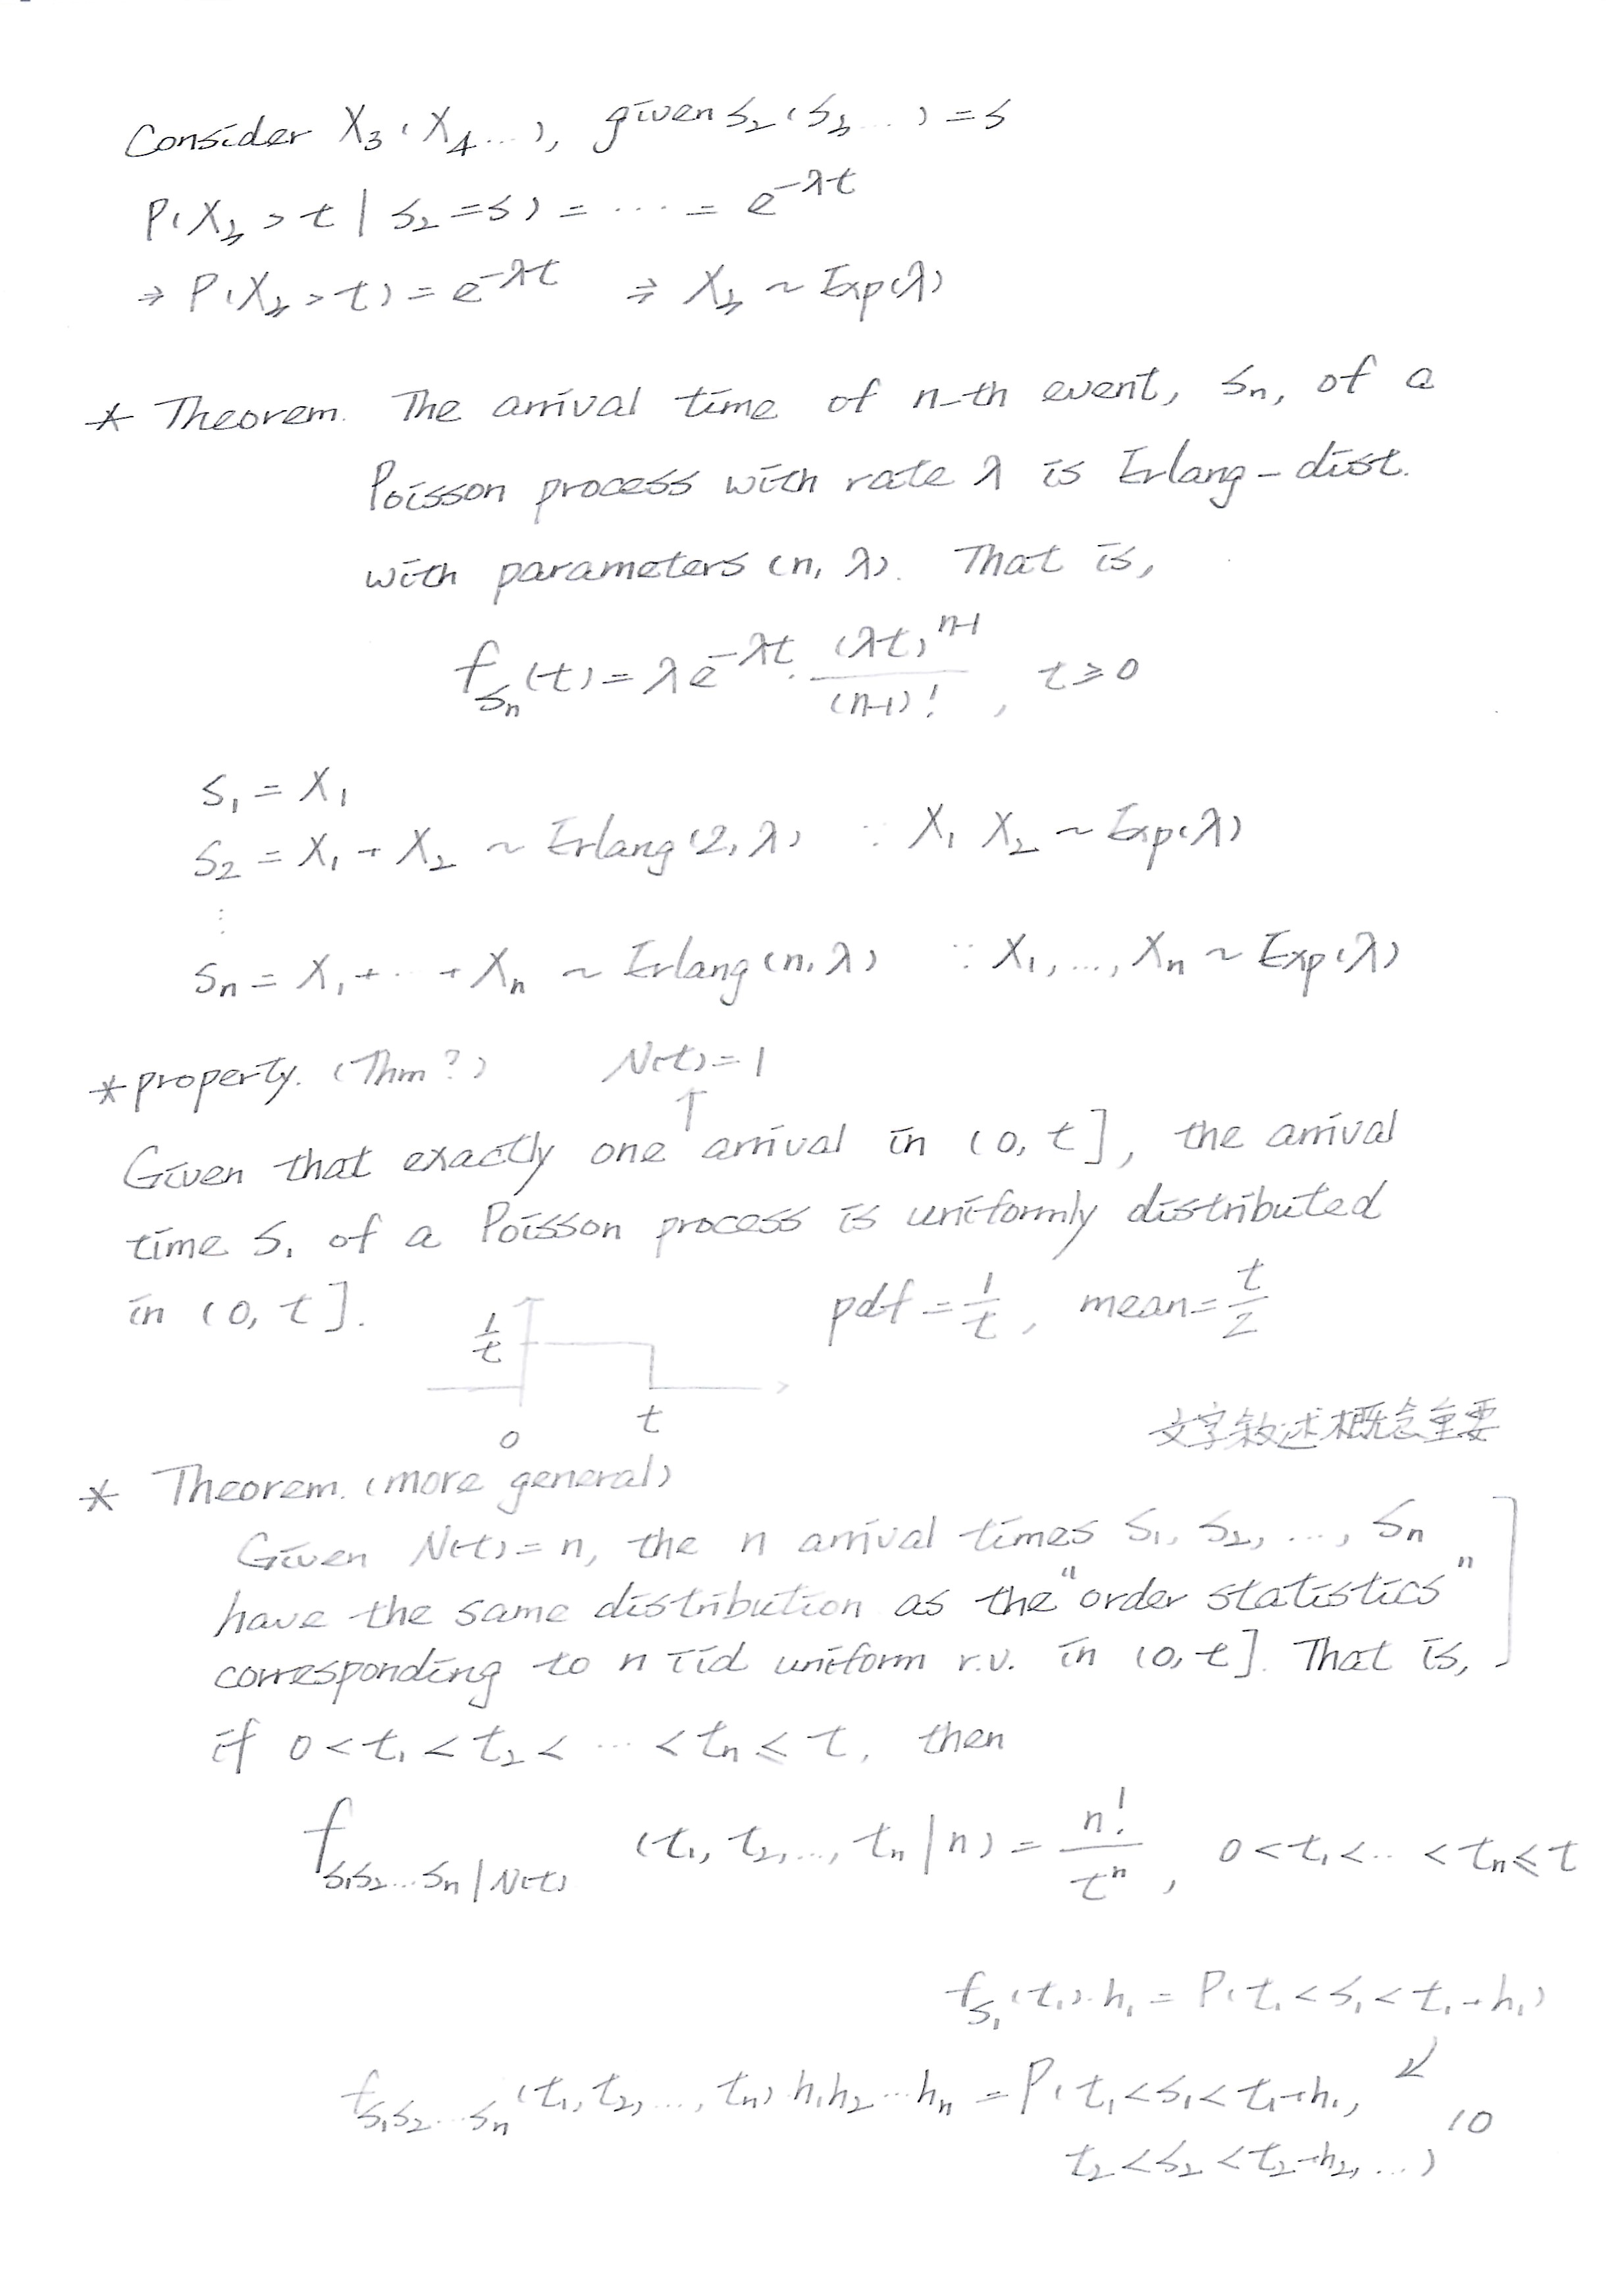 Consider X₃ (X₄ ...), given S₂ (S₃ ...) = s
P(X₃ > t | S₂ = s) = ... = e^{-λt}
⇒ P(X₃ > t) = e^{-λt} ⇒ X₃ ~ Exp(λ)
* Theorem. The arrival time of n-th event, Sn, of a
Poisson process with rate λ is Erlang-dist.
with parameters (n, λ). That is,
f_{Sn}(t) = λe^{-λt} · (λt)^{n-1} / (n-1)! , t ≥ 0
S₁ = X₁
S₂ = X₁ + X₂ ~ Erlang(2, λ) ∵ X₁ X₂ ~ Exp(λ)
⋮
Sn = X₁ + ... + Xn ~ Erlang(n, λ) ∵ X₁, ..., Xn ~ Exp(λ)
* property. (Thm?) N(t) = 1
↑
Given that exactly one arrival in (0, t], the arrival
time S₁ of a Poisson process is uniformly distributed
in (0, t]. 1/t pdf = 1/t, mean = t/2
0 t
文字敘述概念重要
* Theorem. (more general)
Given N(t) = n, the n arrival times S₁, S₂, ..., Sn
have the same distribution as the "order statistics"
corresponding to n iid uniform r.v. in (0, t]. That is,
if 0 < t₁ < t₂ < ... < tn ≤ t, then
f_{S₁S₂...Sn|N(t)} (t₁, t₂, ..., tn | n) = n! / tⁿ , 0 < t₁ < .. < tn ≤ t
f_{S₁}(t₁)·h₁ = P(t₁ < S₁ < t₁+h₁)
↙
f_{S₁S₂...Sn}(t₁, t₂, ..., tn) h₁h₂...hn = P(t₁ < S₁ < t₁+h₁,
t₂ < S₂ < t₂+h₂, ...)
10